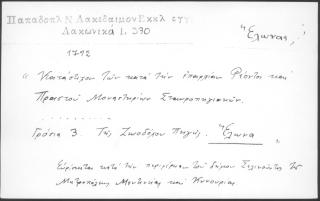 Παπαδοπλ Ν Λακεδαιμον Εκκλ εγγ.
Λακωνικά 1. 390
"Ελωνας"
1792
"Κατάστιχον τῶν κατά τήν ἐπαρχίαν Ρέοντος καί
Πραστοῦ Μοναστηρίων Σταυροπηγιακῶν.
Γρόσια 3. Τῆς Ζωοδόχου Πηγῆς. Ἔλωνα "
Εὑρίσκεται κατά τήν περιφέρειαν τοῦ δήμου Σελινοῦντος τῆς
Μητροπόλεως Μαντινείας καί Κυνουρίας